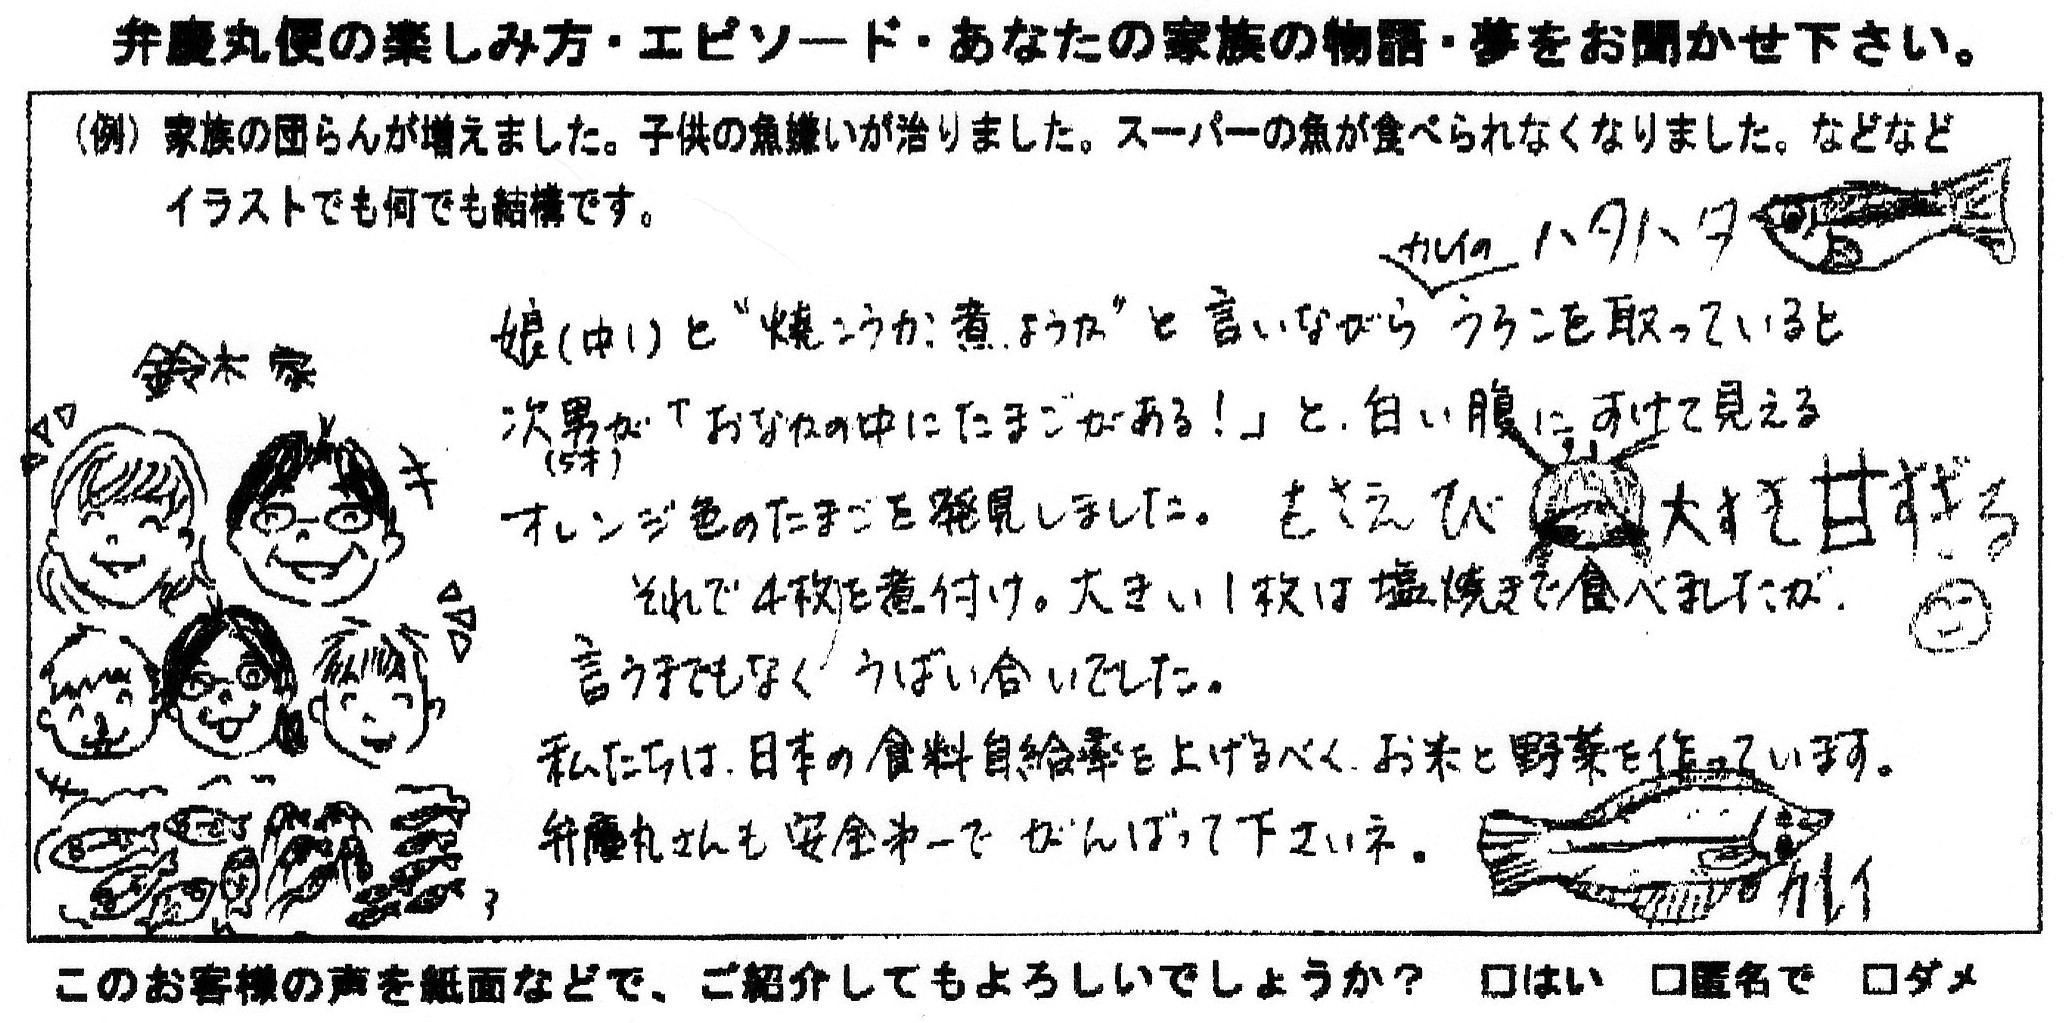 弁慶丸便の楽しみ方・エピソード・あなたの家族の物語・夢をお聞かせ下さい。
（例）家族の団らんが増えました。子供の魚嫌いが治りました。スーパーの魚が食べられなくなりました。などなど
イラストでも何でも結構です。
ハタハタ
カレイの
娘(中1)と〝焼こうか、煮ようか〟と言いながらうろこを取っていると
鈴木家
次男が「おなかの中にたまごがある!」と、白い腹にすけて見える
(5才)
オレンジ色のたまごを発見しました。
もさえび 大すき 甘すぎる
それで4枚を煮付け。大きい1枚は塩焼きで食べましたが、
言うまでもなく うばい合いでした。
私たちは、日本の食料自給率を上げるべく、お米と野菜を作っています。
弁慶丸さんも安全第一でがんばって下さいネ。
カレイ
このお客様の声を紙面などで、ご紹介してもよろしいでしょうか？ □はい □匿名で □ダメ